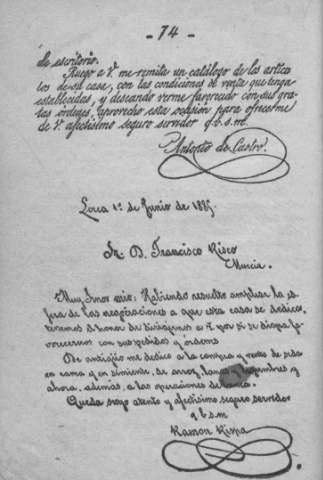 - 74 -
de escritorio.
Ruego a V. me remita un catálogo de los artícu
los de su casa, con las condiciones de venta que tenga
establecidas, y deseando verme favorecido con sus gra
tas órdenes, aprovecho esta ocasión para ofrecerme
de V. afectísimo seguro servidor q. b. s. m.
Antonio de Castro.
Lorca 1º de Junio de 188
Sr. D. Francisco Risco
Murcia.
Muy Snor mio: Habiendo resuelto ampliar la es
fera de las operaciones a que esta casa se dedica,
honor de dirigirnos a V. por si se digna fa
vorecernos con sus pedidos y órdenes
De antiguo me dedico a la compra y venta de seda
en rama y en simiente, de arroz, lanas y legumbres y
ahora, además, a las operaciones de banca.
Queda suyo atento y afectísimo seguro servidor
q. b. s. m.
Ramon Rispa